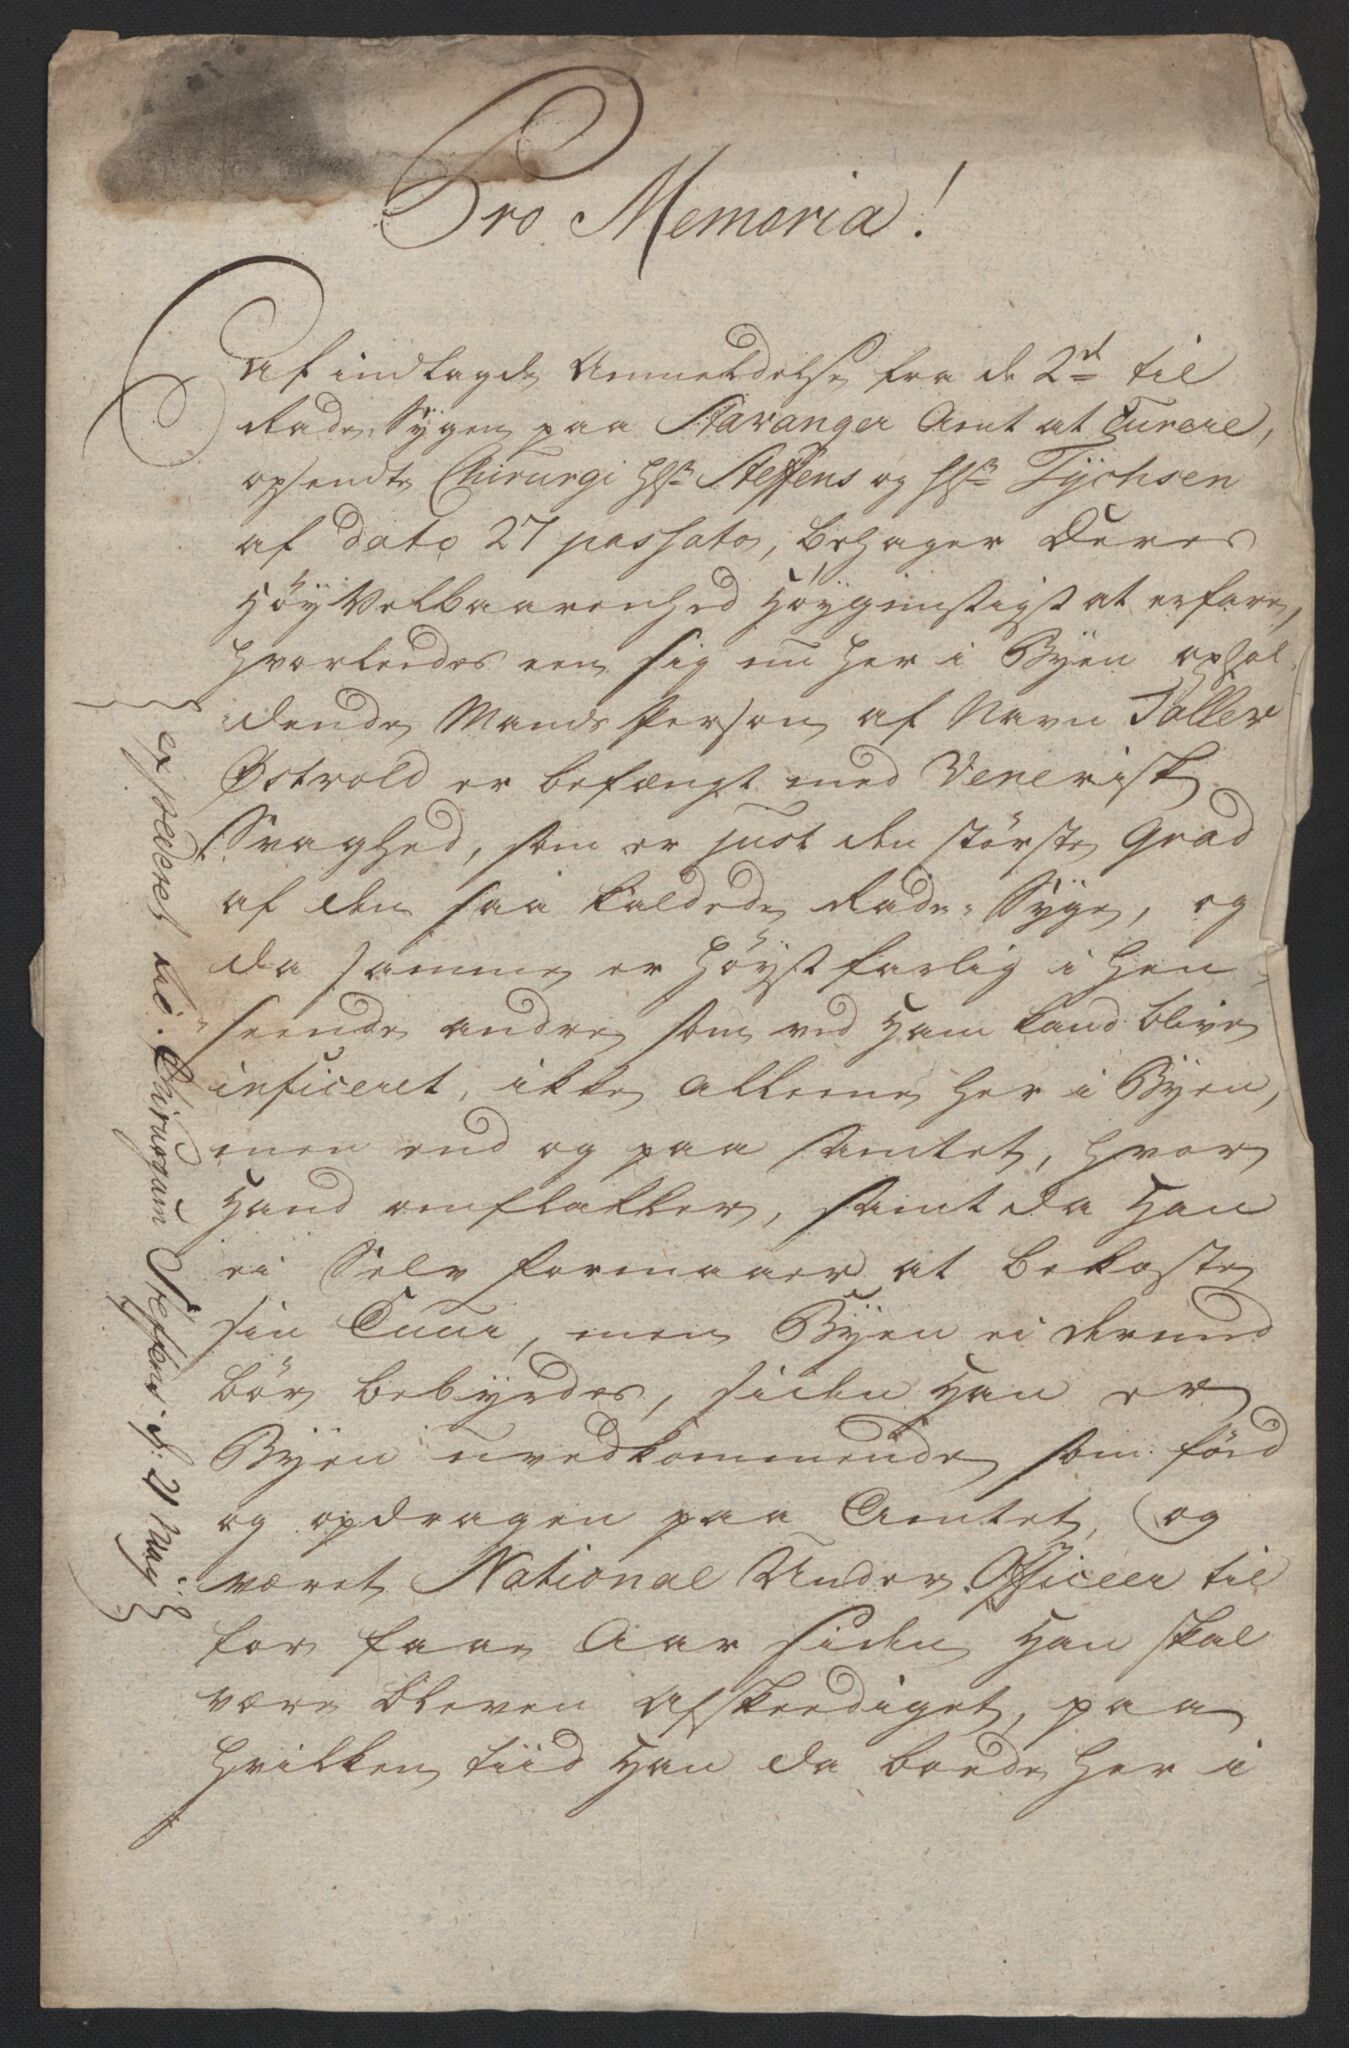 Pro Memoria!
Af indlagde Anmeldelse fra de 2de til
Rade-Sygen paa Stavanger Amt at Curere,
opsendte Chirurgi Hr. Steffens og Hr. Tychsen
af dato 27 passato, behager Deres
Høy Velbaarenhed Høygunstigst at erfare,
hvorledes een sig nu her i Byen ophol-
dende Mands Person af Navn Toller
Østvold er befængt med Venerisk
Svaghed, som er just den største Grad
af den saa kaldede Rade-Syge, og
da samme er høyst farlig i Hen-
seende andre som ved Ham kand blive
inficeret, ikke alleene her i Byen,
men end og paa Amtet, hvor
Hand omflakker, samt da Han
ei Selv formaaer at bekoste
sin Cuur, men Byen ei derved
bør bebyrdes, siden Han er
Byen uvedkommende som fød
og opdragen paa Amtet, og
været National Under Officeer til
for faae Aar siden Han skal
være bleven Afskeediget, paa
hvilken tiid Han da boede her i
expederet til Chirurgum Steffens d: 21 May